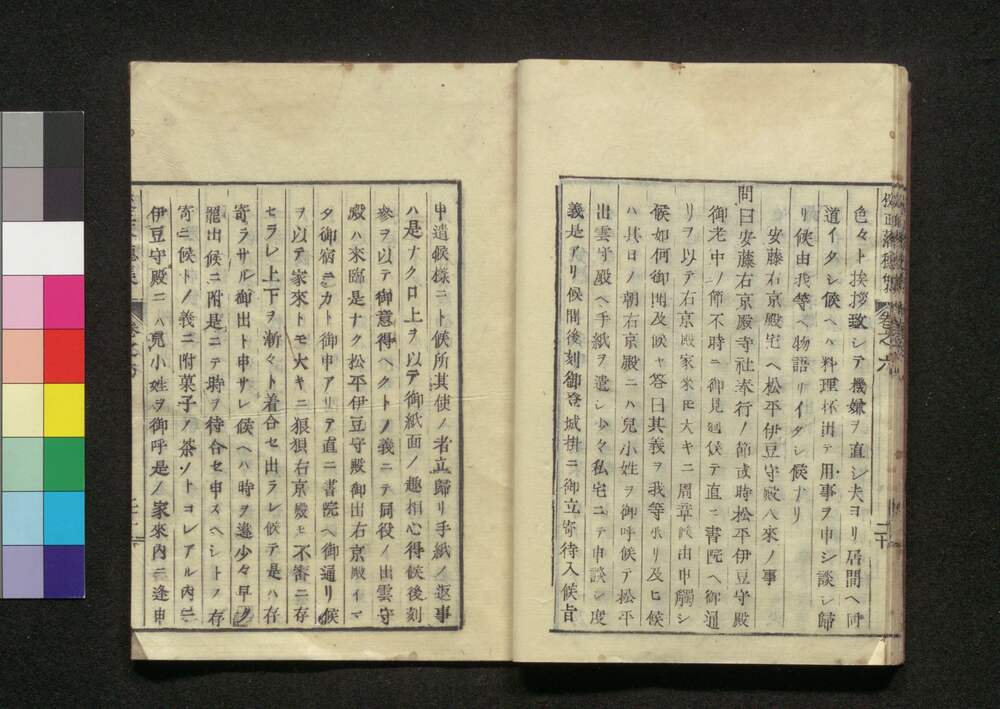 色々ト挨拶致シテ機嫌ヲ直シ夫ヨリ居間ヘ同
道イタシ候ヘハ料理杯出テ用事ヲ申シ談シ歸
リ候由我等ヘ物語リイタシ候ナリ
安藤右京殿宅ヘ松平伊豆守殿入來ノ事
問曰安藤右京殿寺社奉行ノ節或時松平伊豆守殿
御老中ノ節不時ニ御見廻候テ直ニ書院ヘ御通
リヲ以テ右京殿家來モ大キニ周章候由申觸シ
候如何御聞及候ヤ答曰其義ヲ我等承リ及ヒ候
ハ其日ノ朝右京殿ニハ兒小姓ヲ御呼候テ松平
出雲守殿ヘ手紙ヲ遣シ少々私宅ニテ申談シ度
義是アリ候間後刻御登城掛ニ御立寄待入候旨
申遣候様ニト候所其使ノ者立歸リ手紙ノ返事
ハ是ナク口上ヲ以テ御紙面ノ趣相心得候後刻
參ヲ以テ御意得ヘクトノ義ニテ同役ノ出雲守
殿ハ來臨是ナク松平伊豆守殿御出右京殿イマ
タ御宿ニカト御申アリテ直ニ書院ヘ御通リ候
ヲ以テ家來トモ大キニ狼狽右京殿モ不審ニ存
セラレ上下ヲ漸々ト着合セ出ラレ候テ是ハ存
寄ラサル御出ト申サレ候ヘハ時ヲ進少々早ク
罷出候ニ附是ニテ時ヲ待合セ申スヘシトノ存
寄ニ候トノ義ニ附菓子ノ茶ノトコレアル内ニ
伊豆守殿ニハ見小姓ヲ御呼是ノ家來内ニ逢申